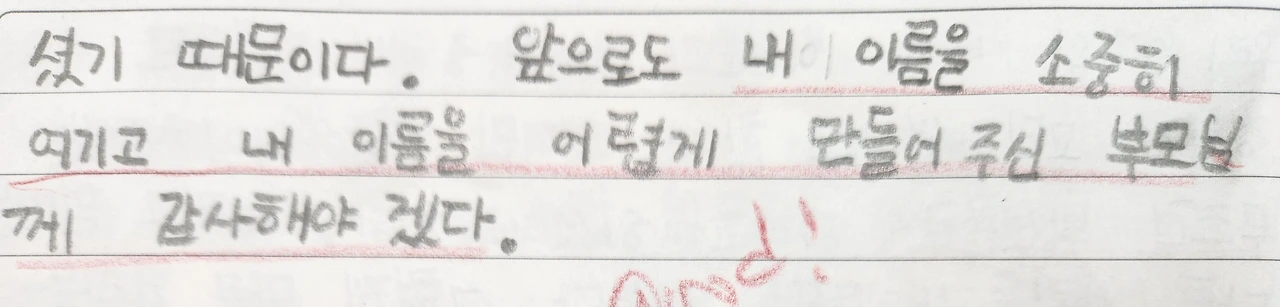 셨기 때문이다. 앞으로도 내 이름을 소중히
여기고 내 이름을 어렵게 만들어 주신 부모님
께 감사해야 겠다.
Good!